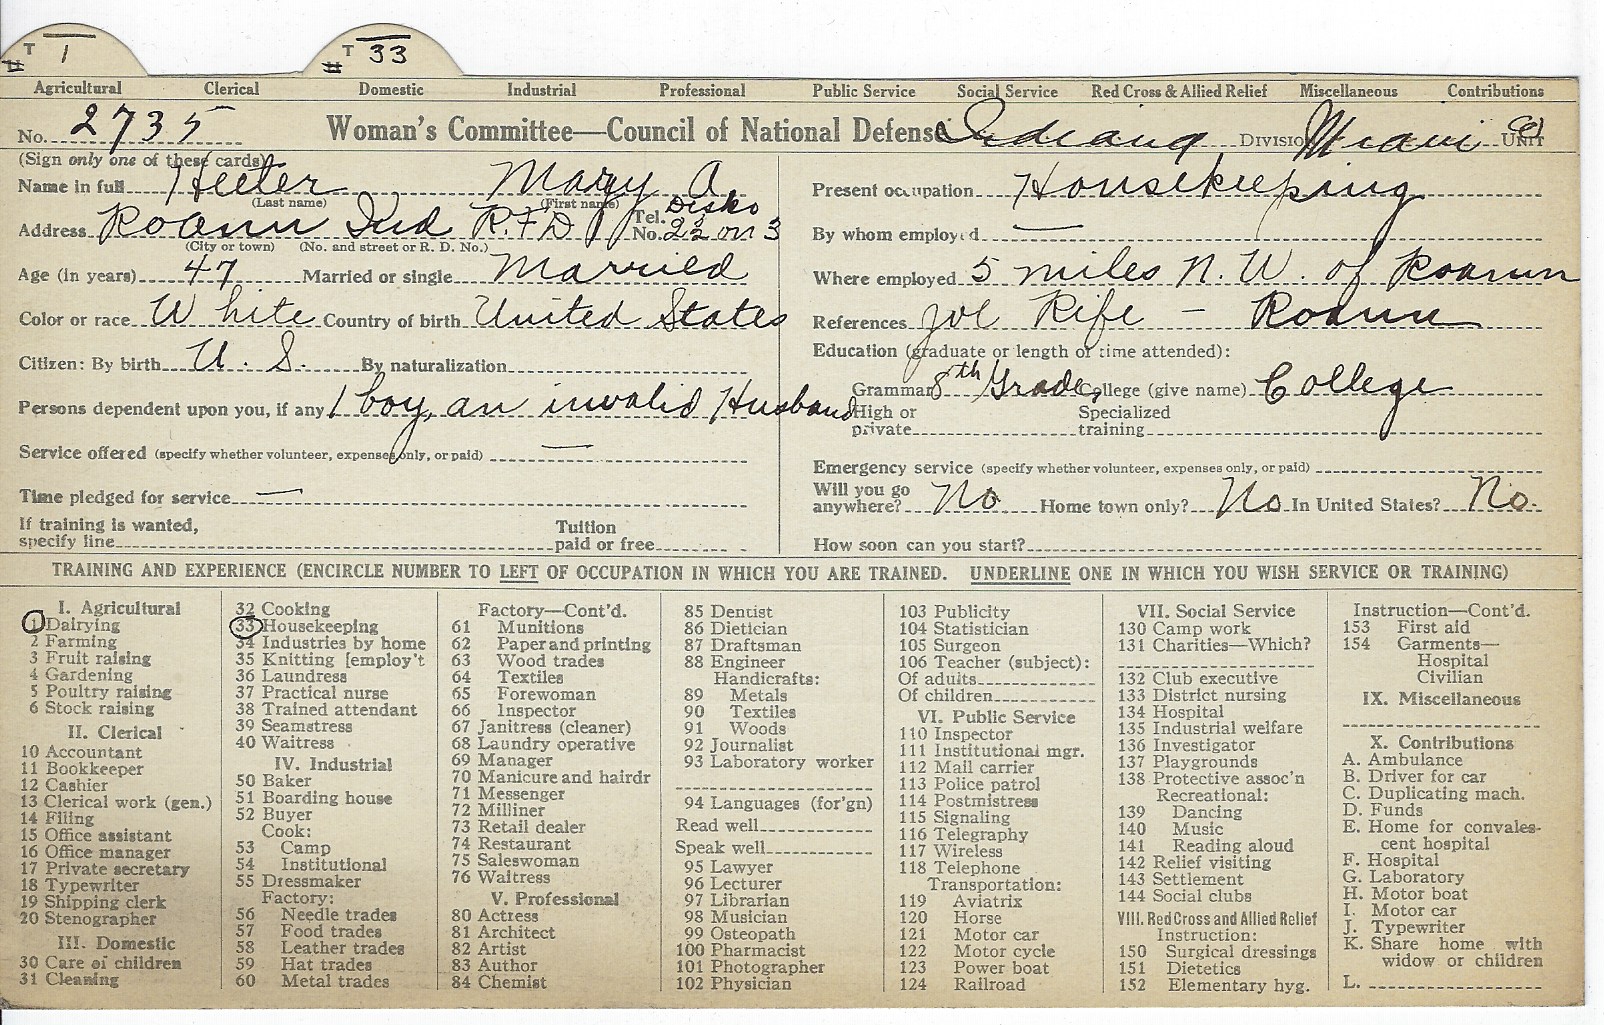 T 1 T 33
# #
Agricultural Clerical Domestic Industrial Professional Public Service Social Service Red Cross & Allied Relief Miscellaneous Contributions
No. 2735 Woman's Committee—Council of National Defense Indiana Division Miami Unit
(Sign only one of these cards)
Name in full Heeter Mary A
(Last name) (First name)
Address Roann Ind R.F.D 1 Tel. No. Disko 22 on 3
(City or town) (No. and street or R. D. No.)
Age (in years) 47 Married or single Married
Color or race White Country of birth United States
Citizen: By birth U. S. By naturalization
Persons dependent upon you, if any 1 boy, an invalid Husband
Service offered (specify whether volunteer, expenses only, or paid) —
Time pledged for service —
If training is wanted, Tuition
specify line paid or free
Present occupation Housekeeping
By whom employed —
Where employed 5 miles N. W. of Roann
References Joe Rife - Roann
Education (graduate or length of time attended):
Grammar 8th Grade, College (give name) College
High or Specialized
private training
Emergency service (specify whether volunteer, expenses only, or paid)
Will you go
anywhere? No Home town only? No In United States? No.
How soon can you start?
TRAINING AND EXPERIENCE (ENCIRCLE NUMBER TO LEFT OF OCCUPATION IN WHICH YOU ARE TRAINED. UNDERLINE ONE IN WHICH YOU WISH SERVICE OR TRAINING)
I. Agricultural
1 Dairying
2 Farming
3 Fruit raising
4 Gardening
5 Poultry raising
6 Stock raising
II. Clerical
10 Accountant
11 Bookkeeper
12 Cashier
13 Clerical work (gen.)
14 Filing
15 Office assistant
16 Office manager
17 Private secretary
18 Typewriter
19 Shipping clerk
20 Stenographer
III. Domestic
30 Care of children
31 Cleaning
32 Cooking
33 Housekeeping
34 Industries by home
35 Knitting [employ't
36 Laundress
37 Practical nurse
38 Trained attendant
39 Seamstress
40 Waitress
IV. Industrial
50 Baker
51 Boarding house
52 Buyer
Cook:
53 Camp
54 Institutional
55 Dressmaker
Factory:
56 Needle trades
57 Food trades
58 Leather trades
59 Hat trades
60 Metal trades
Factory—Cont'd.
61 Munitions
62 Paper and printing
63 Wood trades
64 Textiles
65 Forewoman
66 Inspector
67 Janitress (cleaner)
68 Laundry operative
69 Manager
70 Manicure and hairdr
71 Messenger
72 Milliner
73 Retail dealer
74 Restaurant
75 Saleswoman
76 Waitress
V. Professional
80 Actress
81 Architect
82 Artist
83 Author
84 Chemist
85 Dentist
86 Dietician
87 Draftsman
88 Engineer
Handicrafts:
89 Metals
90 Textiles
91 Woods
92 Journalist
93 Laboratory worker
94 Languages (for'gn)
Read well
Speak well
95 Lawyer
96 Lecturer
97 Librarian
98 Musician
99 Osteopath
100 Pharmacist
101 Photographer
102 Physician
103 Publicity
104 Statistician
105 Surgeon
106 Teacher (subject):
Of adults
Of children
VI. Public Service
110 Inspector
111 Institutional mgr.
112 Mail carrier
113 Police patrol
114 Postmistress
115 Signaling
116 Telegraphy
117 Wireless
118 Telephone
Transportation:
119 Aviatrix
120 Horse
121 Motor car
122 Motor cycle
123 Power boat
124 Railroad
VII. Social Service
130 Camp work
131 Charities—Which?
132 Club executive
133 District nursing
134 Hospital
135 Industrial welfare
136 Investigator
137 Playgrounds
138 Protective assoc'n
Recreational:
139 Dancing
140 Music
141 Reading aloud
142 Relief visiting
143 Settlement
144 Social clubs
VIII. Red Cross and Allied Relief
Instruction:
150 Surgical dressings
151 Dietetics
152 Elementary hyg.
Instruction—Cont'd.
153 First aid
154 Garments—
Hospital
Civilian
IX. Miscellaneous
X. Contributions
A. Ambulance
B. Driver for car
C. Duplicating mach.
D. Funds
E. Home for convales-
cent hospital
F. Hospital
G. Laboratory
H. Motor boat
I. Motor car
J. Typewriter
K. Share home with
widow or children
L.